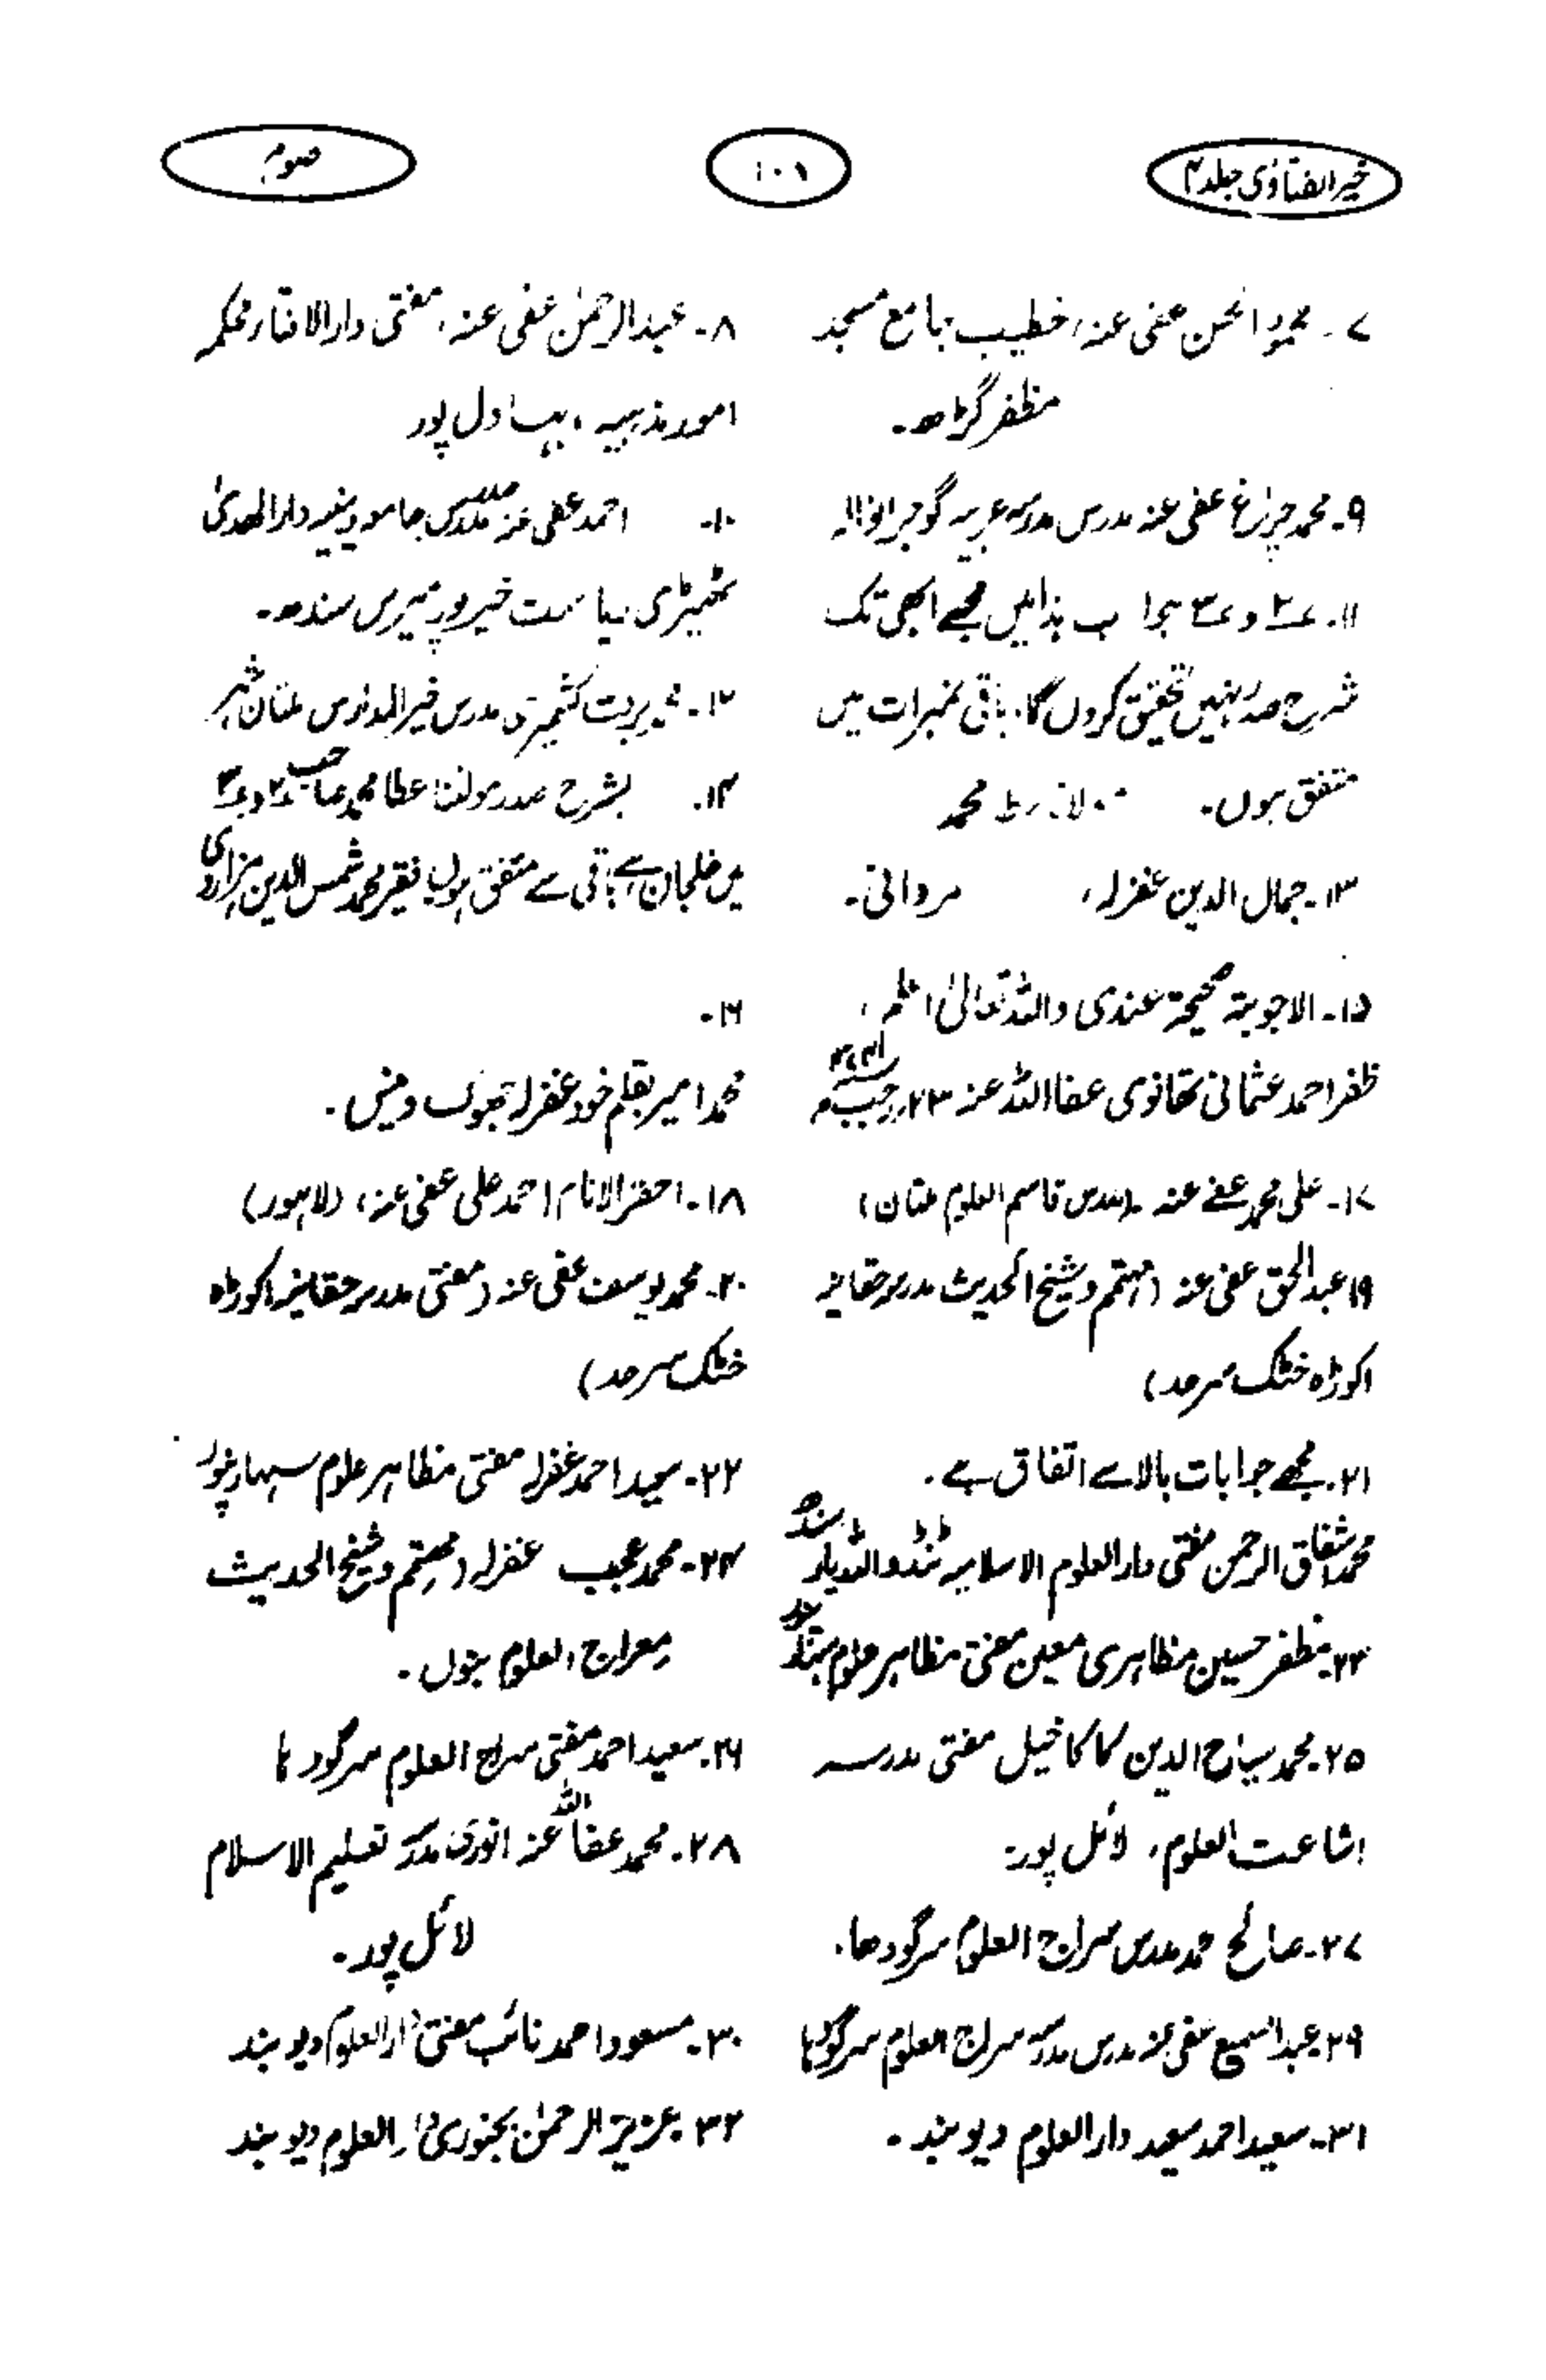 خیر الفتاوٰی جلد ۴
۱۰۱
صوم
۷۔ محمود الحسن عفی عنہ، خطیب جامع مسجد
مظفر گڑھ۔
۸۔ عبدالرحمٰن عفی عنہ، مفتی دارالافتاء محکمہ
امور مذہبیہ، بہاول پور
۹۔ محمد چراغ عفی عنہ مدرس مدرسہ عربیہ گوجرانوالہ
۱۰۔ احمد عفی عنہ مدرس جامعہ دینیہ دارالھدیٰ
ٹھیڑی ریاست خیرپور میرس سندھ۔
۱۱۔ ۲ و ۳ جواب ہذا میں مجھے ابھی تک
شرح صدر نہیں تحقیق کروں گا۔ باقی نمبرات میں
متفق ہوں۔ مولانا عطا محمد
۱۲۔ محمد شریف کشمیری مدرس خیر المدارس ملتان شہر
۱۳۔ جمال الدین غفرلہ، مردانی۔
۱۴۔ بشرح صدر مولانا عطا محمد صاحب ۲ و ۳
میں خلجان ہے باقی سے متفق ہوں فقیر محمد شمس الدین ہزاروی
۱۵۔ الاجوبۃ صحیحۃ عندی واللہ تعالیٰ اعلم،
ظفر احمد عثمانی تھانوی عفا اللہ عنہ ۲۳ رجب
۱۶۔
محمد امیر بقلم خود غفرلہ
۱۷۔ علی محمد عفی عنہ (مدرس قاسم العلوم ملتان)
۱۸۔ احقر الانام احمد علی عفی عنہ، (لاہور)
۱۹ عبدالحق عفی عنہ (مہتمم و شیخ الحدیث مدرسہ حقانیہ
اکوڑہ خٹک سرحد)
۲۰۔ محمد یوسف عفی عنہ (مفتی مدرسہ حقانیہ اکوڑہ
خٹک سرحد)
۲۱۔ مجھے جوابات بالا سے اتفاق ہے۔
محمد اشفاق الرحمن مفتی دارالعلوم الاسلامیہ ٹنڈو الٰہ یار سندھ
۲۲۔ سعید احمد غفرلہ مفتی مظاہر علوم سہارنپور
۲۳۔ مظفر حسین مظاہری معین مفتی مظاہر علوم
۲۴۔ محمد عجب غفرلہ (مہتمم و شیخ الحدیث
معراج العلوم بنوں۔
۲۵۔ محمد سیاح الدین کاکاخیل مفتی مدرسہ
اشاعت العلوم، لائل پور۔
۲۶۔ سعید احمد مفتی سراج العلوم سرگودہا
۲۷۔ صالح محمد مدرس سراج العلوم سرگودھا۔
۲۸۔ محمد عفا اللہ عنہ انوری مدرسہ تعلیم الاسلام
لائل پور۔
۲۹۔ عبدالسمیع عفی عنہ مدرس مدرسہ سراج العلوم سرگودہا
۳۰۔ مسعود احمد نائب مفتی دارالعلوم دیوبند
۳۱۔ سعید احمد سعید دارالعلوم دیوبند۔
۳۲۔ عزیز الرحمٰن بجنوری دارالعلوم دیوبند